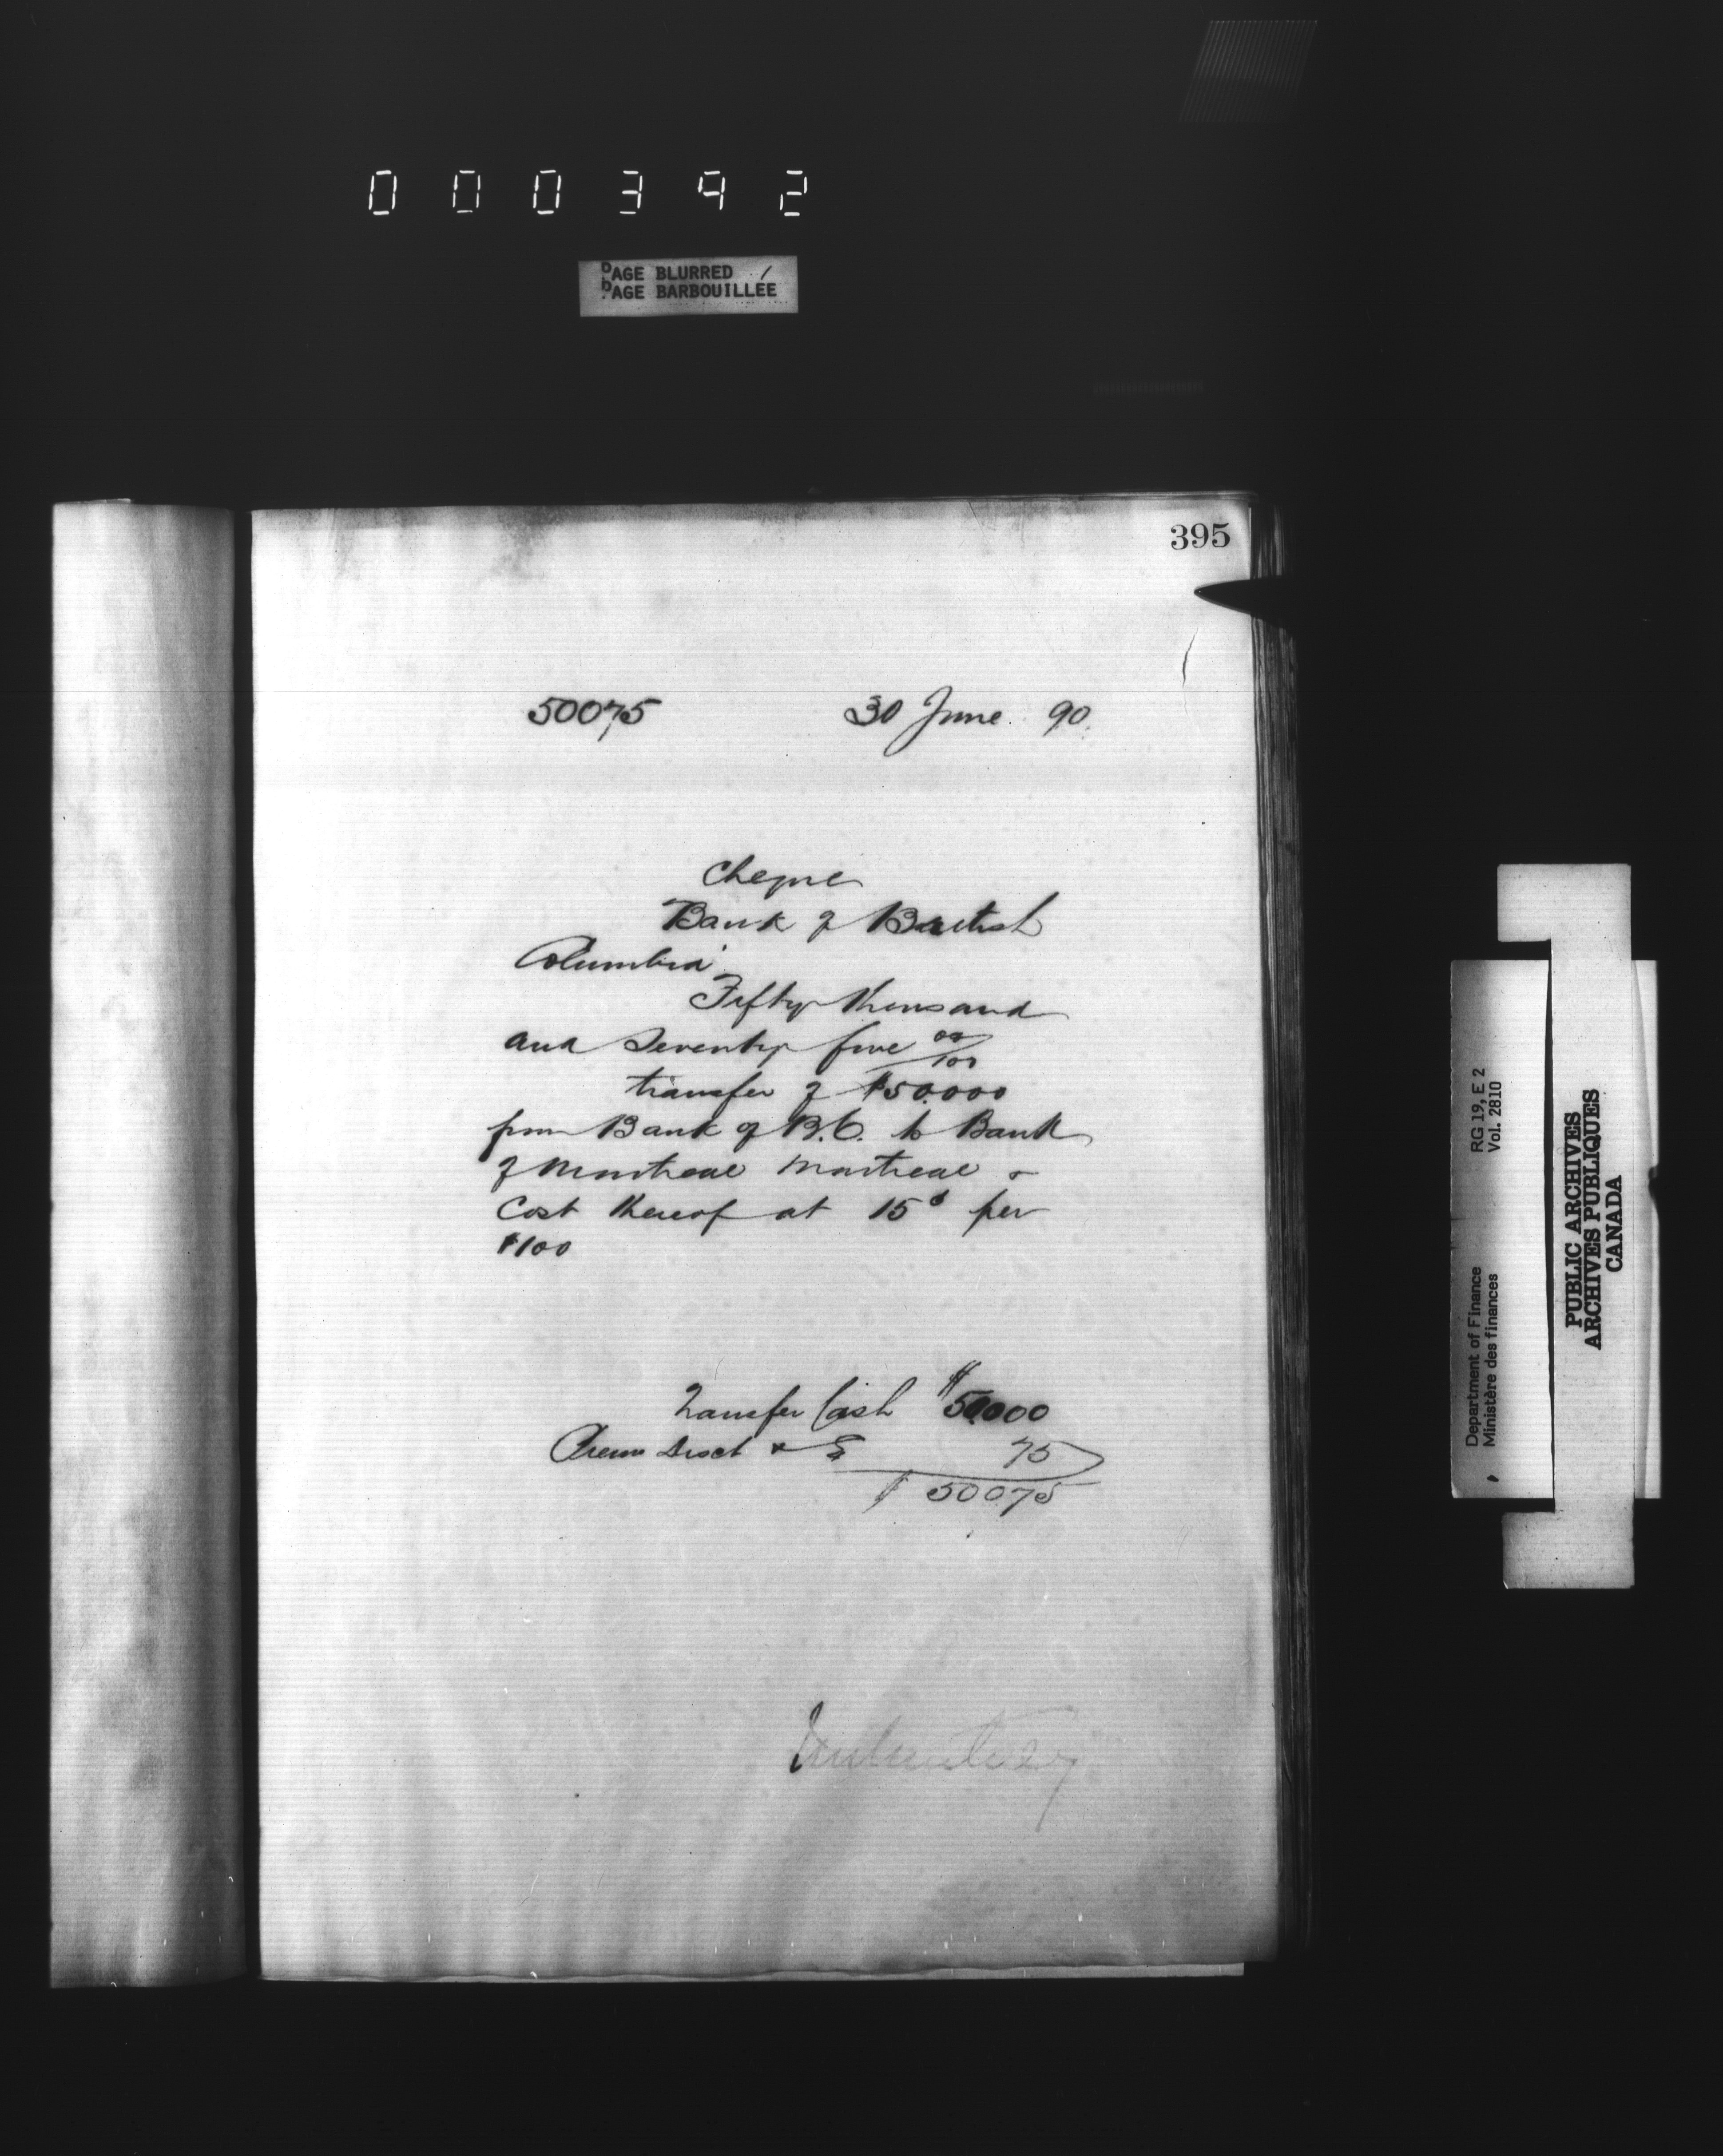 000392
PAGE BLURRED
PAGE BARBOUILLÉE
395
50075 30 June 90.
Cheque
Bank of British
Columbia
Fifty thousand
and Seventy five 00/100
transfer of $50.000
from Bank of B.C. to Bank
of Montreal Montreal &
Cost thereof at 15¢ per
$100
Transfer Cash $50000
Prem Disct & E 75
$ 50075
Department of Finance RG 19, E 2
Ministère des finances Vol. 2810
PUBLIC ARCHIVES
ARCHIVES PUBLIQUES
CANADA